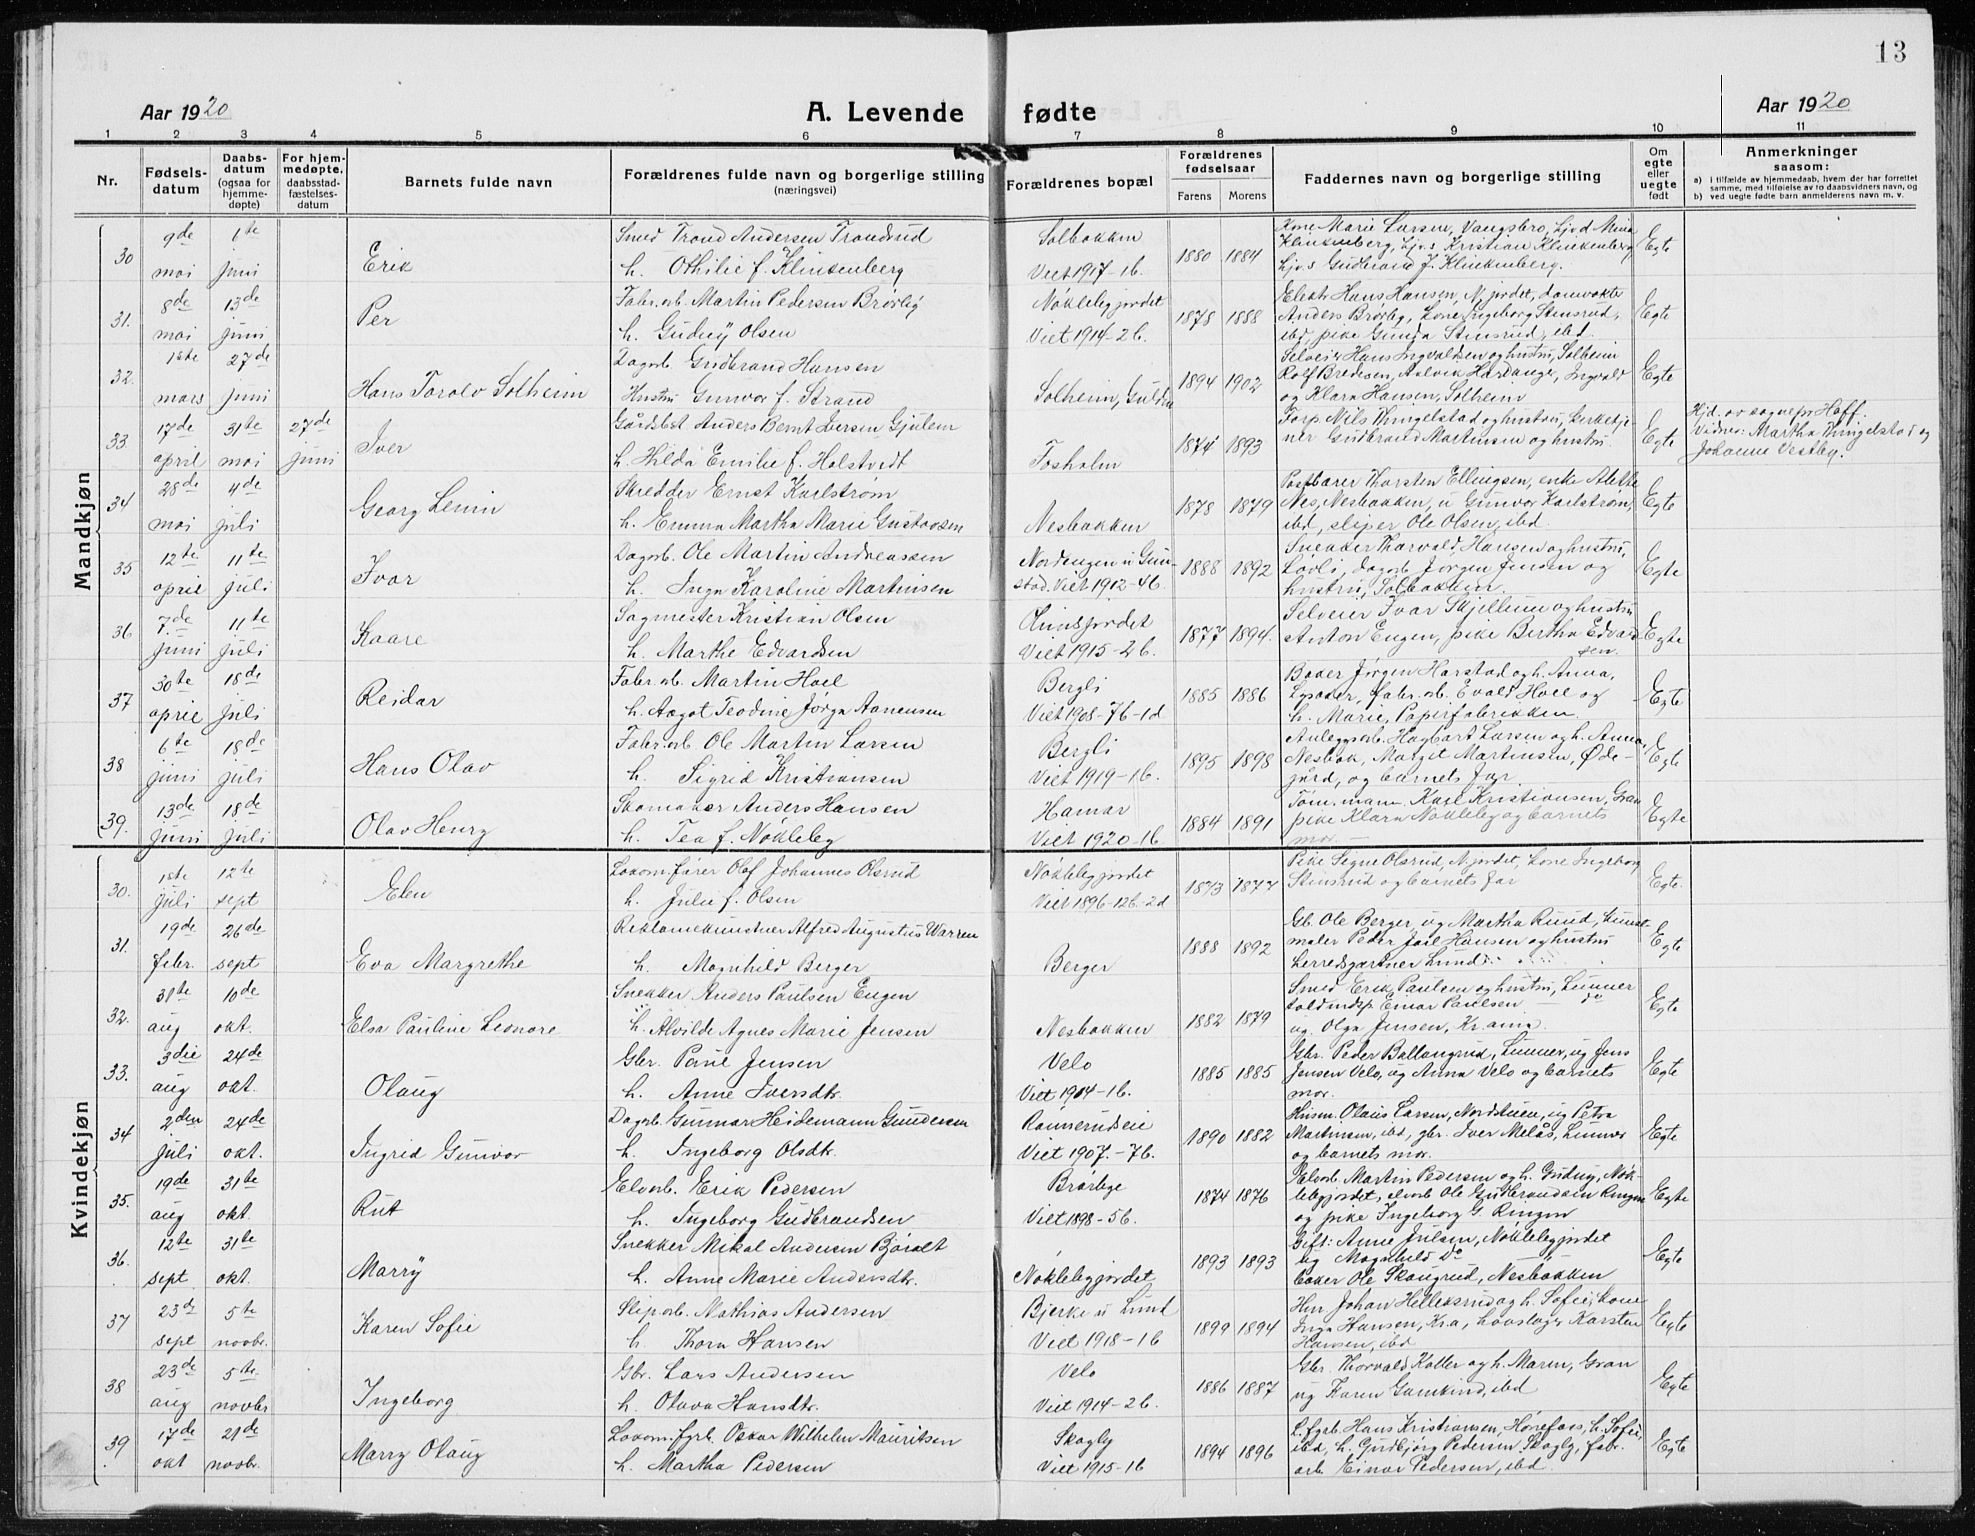 13
Aar 1920
A. Levende fødte
Aar 1920
1 2 3 4 5 6 7 8 9 10 11
Nr.
Fødsels-
datum
Daabs-
datum
(ogsaa for
hjemme-
døpte)
For hjem-
medøpte,
daabsstad-
fæstelses-
datum
Barnets fulde navn
Forældrenes fulde navn og borgerlige stilling
(næringsvei)
Forældrenes bopæl
Forældrenes
fødselsaar
Farens Morens
Faddernes navn og borgerlige stilling
Om
egte
eller
uegte
født
Anmerkninger
saasom:
a) i tilfælde av hjemmedaab, hvem der har forrettet
samme, med tilføielse av to daabsvidners navn, og
b) ved uegte fødte barn anmelderens navn m. v.
Mandkjøn
30 9de mai 1te juni Erik
Smed Trond Andersen Trondrud
h. Othilie f. Klinkenberg
Solbakken
Viet 1917-1b.
1880 1884
Kone Marie Larsen, Vangsbro, Ljvd Mina
Klinkenberg, Ljvs Kristian Klinkenberg
Ljvs Gudbrand J. Klinkenberg.
Egte
31. 8de mai 13de juni Per
Fabr.arb. Martin Pedersen Brørby
h. Gudny Olsen
Nøklebygjordet
Viet 1914-2b.
1878 1888
Elektr Hans Hansen, N.jordet, damvokter
Anders Brørby, kone Ingeborg Stensrud,
ibd, pike Gunda Stensrud, ibd
Egte
32. 1ste mars 27de juni Hans Torolv Solheim
Dagarb. Gudbrand Hansen
Hustru Gunvor f. Strand
Solheim, Gulden
1894 1902
Selveier Hans Ingvaldsen og hustru, Solheim
Rolf Bredesen, Aalvik Hardanger, Ingvald
og Klara Hansen, Solheim
Egte
33 17de april 31te mai 27de juni Iver
Gårdbst Anders Bernt Iversen Gjulem
h. Hilda Emilie f. Holstvedt
Fosholm
1874 1893
Forp. Nils Thingelstad og hustru, kerketje
ner Gudbrand Martinsen og hustru
Egte
Hjd. av sognepr Hoff.
Vidner: Martha Thingelstad og
Johanne Vestby.
34 28de mai 4de juli Georg Lenin
Skredder Ernst Karlstrøm
h. Emma Martha Marie Gustavsen
Nesbakken
1878 1879
Postbærer Thorsten Ellingsen, enke Alette
Nes, Nesbakken, u Gunvor Karlstrøm,
ibd, sliper Ole Olsen, ibd.
Egte
35 12te april 11te juli Ivar
Dagarb. Ole Martin Andreassen
h. Inga Karoline Martinsen
Nordengen u Gun-
stad. Viet 1912-4b.
1888 1892
Snekker Thorvald Hansen og hustru,
Lovli, Dagarb Jørgen Jensen og
hustru, Solbakken.
Egte
36 7de juni 11te juli Kaare
Sagmester Kristian Olsen
h. Marthe Edvardsen
Viet 1915-2b.
1877 1894.
Selveier Ivar Skjellum og hustru
Anton Engen, pike Bertha Edvard
sen.
Egte
37 30te april 18de juli Reidar
Fabr.arb. Martin Hoel
h. Aagot Teodine Jørga Aanensen
Bergli
Viet 1908-7b-1d
1885 1886
Baker Jørgen Harstad og h. Anna,
Lysaker, fabr.arb. Evald Hoel og
h. Marie, Papirfabrikken.
Egte
38 6te juni 18de juli Hans Olav
Fabr.arb. Ole Martin Larsen
h. Sigrid Kristiansen
Bergli
Viet 1919-1b.
1895 1898
Anlegsarb. Hagbart Larsen og h. Anna,
Nesbak, Margit Martinsen, Øde-
gård, og barnets far
Egte
39. 13de juni 18de juli Olav Henry
Skomaker Anders Hansen
h. Tea f. Nøkleby
Hamar
Viet 1920-1b
1884 1891
Tøm.mann Karl Kristiansen, Gran
pike Klara Nøkleby og barnets
mor —
Egte
Kvindekjøn
30. 1ste juli 12te sept Elen
Lokom.fører Olaf Johannes Olsrud
h. Julie f. Olsen
Nøklebygjordet
Viet 1896-12b-2d
1873 1877
Pike Signe Olsrud, N.jordet, kone Ingeborg
Stensrud og barnets far
Egte.
31. 19de febr. 26de sept Eva Margrethe
Reklamekunstner Alfred Augustus Warren
h. Magnhild Berger
Berger
1888 1892
Gb. Ole Berger, ug Martha Ruud, kunst
maler Peder Joil Hansen og hustru
herredsgartner Lund
Egte
32. 31te aug 10de okt. Elsa Pauline Leonore
Snekker Anders Paulsen Engen
h. Alvilde Agnes Marie Jensen
Nesbakken
1882 1879
Smed Erik Paulsen og hustru, Lunner
Einar Paulsen — do
ug. Olga Jensen, Kr.ania.
Egte
33. 3die aug 24de okt. Olaug
Gbr. Povel Jensen
h. Anne Iversdtr.
Velo
Viet 1904-1b.
1885 1885
Gbr. Peder Ballangrud, Lunner, ug Jens
Jensen Velo, ug Anna Velo og barnets
mor.
Egte
34 2den juli 24de okt. Ingrid Gunvor
Dagarb. Gunnar Heidemann Gundersen
h. Ingeborg Olsdtr.
Rønnerudseie
Viet 1907-7b.
1890 1882
Husm. Olaus Larsen, Nordstuen, ug Petra
Martinsen, ibd, gbr. Iver Melås, Lunner
og barnets mor.
Egte
35. 19de aug 31te okt. Rut
Elvarb. Erik Pedersen
h. Ingeborg Gudbrandsen
Brørbye
Viet 1898-5b.
1874 1876
Elvarb. Martin Pedersen og h. Gudny, Nøk-
lebygjordet, elvarb Ole Gudbrandsen Ringen
og pike Ingeborg G. Ringen
Egte
36. 12te sept 31te okt. Marry
Snekker Mikal Andersen Bjøralt
h. Anne Marie Andersdtr.
Nøklebygjordet
1893 1893
Gift: Anne Julsen, Nøklebygjordet
ug Magnhild Do
baker Ole Skougrud, Nesbakken
Egte
37 23de sept 5te novbr. Karen Sofie
Sliparb. Mathias Andersen
h. Thora Hansen
Bjerke u Lund
Viet 1918-1b
1899 1894
Hm. Johan Hilleksrud og h. Sofie, kone
Inga Hansen, Kr.a, hovslager Karsten
Hansen, ibd
Egte
38 23de aug 5te novbr Ingeborg
Gbr. Lars Andersen
h. Olava Hansdtr.
Velo
Viet 1914-2b.
1886 1887
Gbr. Thorvald Koller og h. Maren, Gran
ug Karen Gamkind, ibd
Egte
39. 17de okt 21de novbr. Marry Olaug
Lokom.fyrb. Oskar Wilhelm Mauritsen
h. Martha Pedersen
Skogly
Viet 1915-1b
1894 1896
L.fyrb. Hans Kristiansen, Hønefoss, h. Sofie,
ibd, h. Gudbjørg Pedersen Skogly, fabr.
arb Einar Pedersen, ibd.
Egte